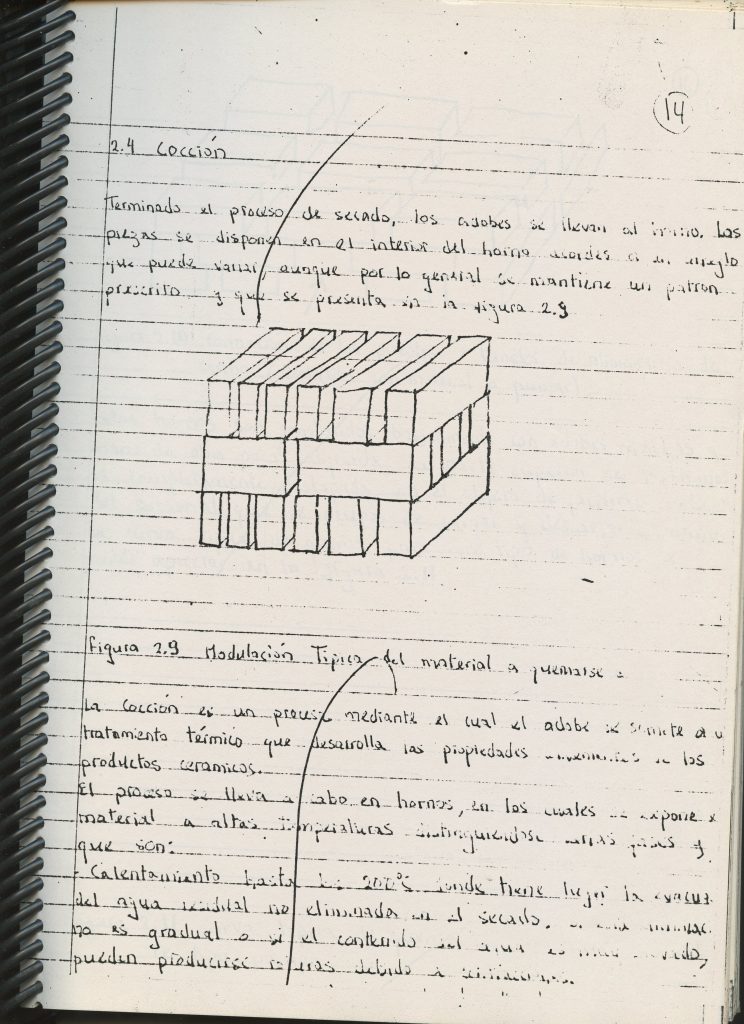 14
2.4 Cocción
Terminado el proceso de secado, los adobes se llevan al horno. Las
piezas se disponen en el interior del horno acordes a un arreglo
que puede variar, aunque por lo general se mantiene un patron
prescrito y que se presenta en la figura 2.9
Figura 2.9 Modulación Tipica del material a quemarse
La cocción es un proceso mediante el cual el adobe se somete a u
tratamiento térmico que desarrolla las propiedades de los
productos ceramicos.
El proceso se lleva a cabo en hornos, en los cuales se expone
material a altas temperaturas distinguiendose fases y
que son:
- Calentamiento hasta los donde tiene lugar la evacua
del agua residual no eliminada en el secado. Si
no es gradual o si el contenido del agua es
pueden producirse debido a